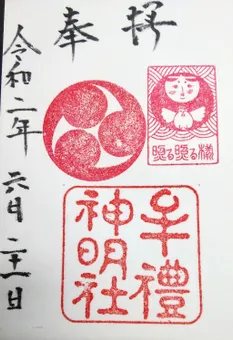 奉拝
令和二年六月二十一日
る る様
牟禮
神明社